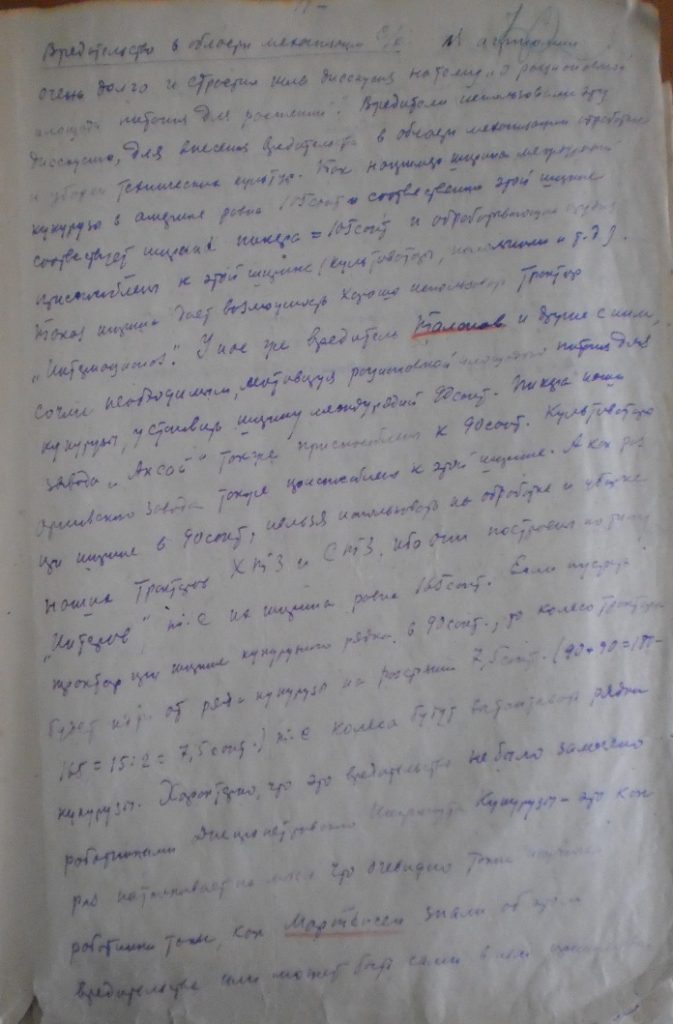 Вредительство в области механизации С/х.
очень долго и страстно шла дискуссия на тему „о рациональной
площади питания для растений". Вредители использовали эту
дискуссию, для внесения вредительства в области механизации обработки
и уборки технических культур. Так например ширина междурядий
кукурузы в америке равна 105 сант и соответственно этой ширине
соответствует ширина пикера = 105 сант и обрабатывающие орудия
приспособлены к этой ширине (культиваторы, и т.д).
Такая ширина дает возможность хорошо использовать трактор
„Интернационал". У нас же вредитель Таланов и другие с ним,
сочли необходимым, мотивируя рациональной площадью питания для
кукурузы, установить ширину междурядий 90 сант. Пикера наши
завода „Аксай" также приспособлены к 90 сант. Культиватора
завода также приспособлены к этой ширине. А как раз
при ширине в 90 сант, нельзя использовать на обработке и уборке
наших тракторов ХТЗ и СТЗ, ибо они построены по типу
„Интеров", т.е их ширина равна 165 сант. Если пустить
трактор при ширине кукурузного рядка в 90 сант., то колесо трактора
будет идти от ряда кукурузы на расстоянии 7,5 сант. (90+90=180-
165=15:2=7,5 сант.) т.е колеса будут вытаптывать рядки
кукурузы. Характерно, что это вредительство не было замечено
работниками Днепропетровского Института Кукурузы - это как
раз наталкивает на мысль что очевидно такие
работники такие, как Мартенсен знали об этом
вредительстве или может быть сами в нем